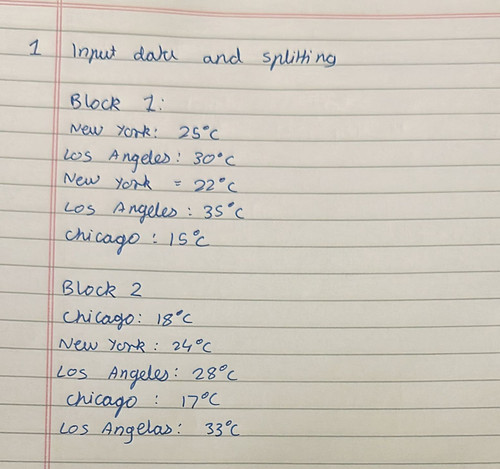 1 Input data and splitting
Block 1:
New York: 25°C
Los Angeles: 30°C
New York = 22°C
Los Angeles: 35°C
Chicago: 15°C
Block 2
Chicago: 18°C
New York: 24°C
Los Angeles: 28°C
Chicago: 17°C
Los Angelas: 33°C